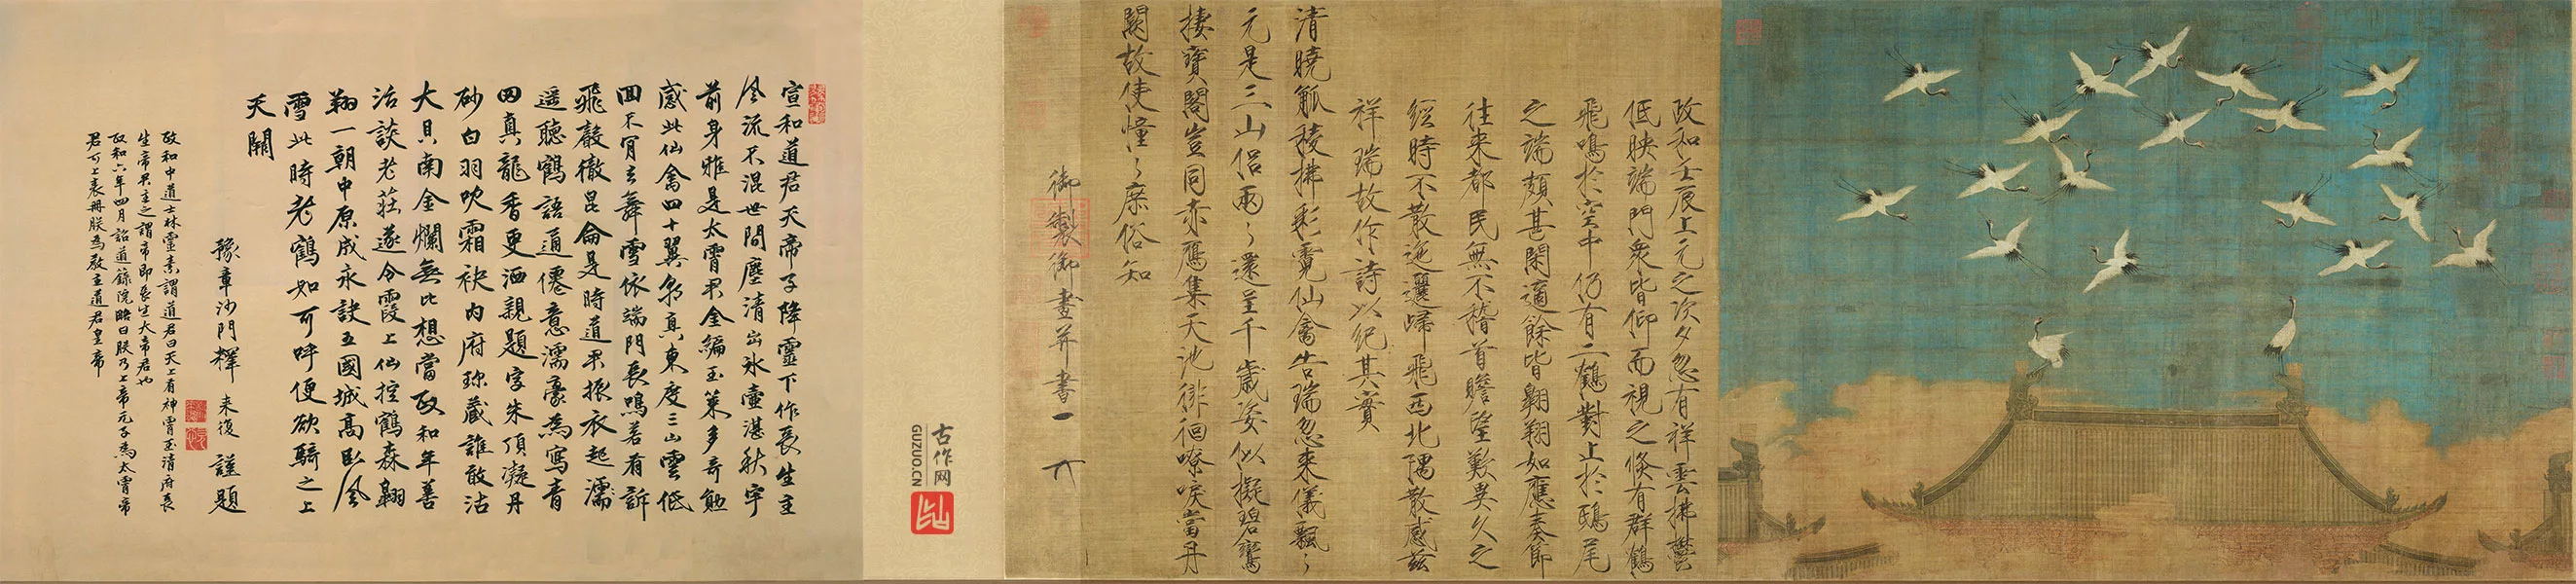 政和壬辰上元之次夕忽有祥雲拂鬱
低映端門衆皆仰而視之倏有群鶴
飛鳴於空中仍有二鶴對止於鴟尾
之端頗甚閑適餘皆翱翔如應奏節
往來都民無不稽首瞻望歎異久之
經時不散迤邐歸飛西北隅散感茲
祥瑞故作詩以紀其實
清曉觚稜拂彩霓仙禽告瑞忽來儀飄〻
元是三山侶兩〻還呈千歲姿似擬碧鸞
棲寶閣豈同赤鴈集天池徘徊嘹唳當丹
闕故使憧〻庶俗知
御製御畫并書
古作网
GUZUO.CN
宣和道君天帝子降靈下作長生主
風流不混世間塵清出氷壺湛秋宇
前身雅是太霄君金編玉策多奇勳
感此仙禽四十翼真東度三山雲低
回不肯去舞雪依端門長鳴若有訴
飛聲徹昆侖是時道君振衣起濡
遥聽鶴語通僊意濡豪為寫青
田真龍香更洒親題字朱頂凝丹
砂白羽吹霜袂内府珎藏誰敢沽
大貝南金爛無比想當政和年善
活談老莊遂令霞上仙控鶴森翱
翔一朝中原成永訣五國城高卧風
雪此時老鶴如可呼便欲騎之上
天關
豫章沙門釋来復謹題
政和中道士林靈素謂道君曰天上有神霄玉清府長
生帝君主之謂帝即長生大帝君也
政和六年四月詔道籙院略曰朕乃上帝元子為太霄帝
君可上表冊朕為教主道君皇帝